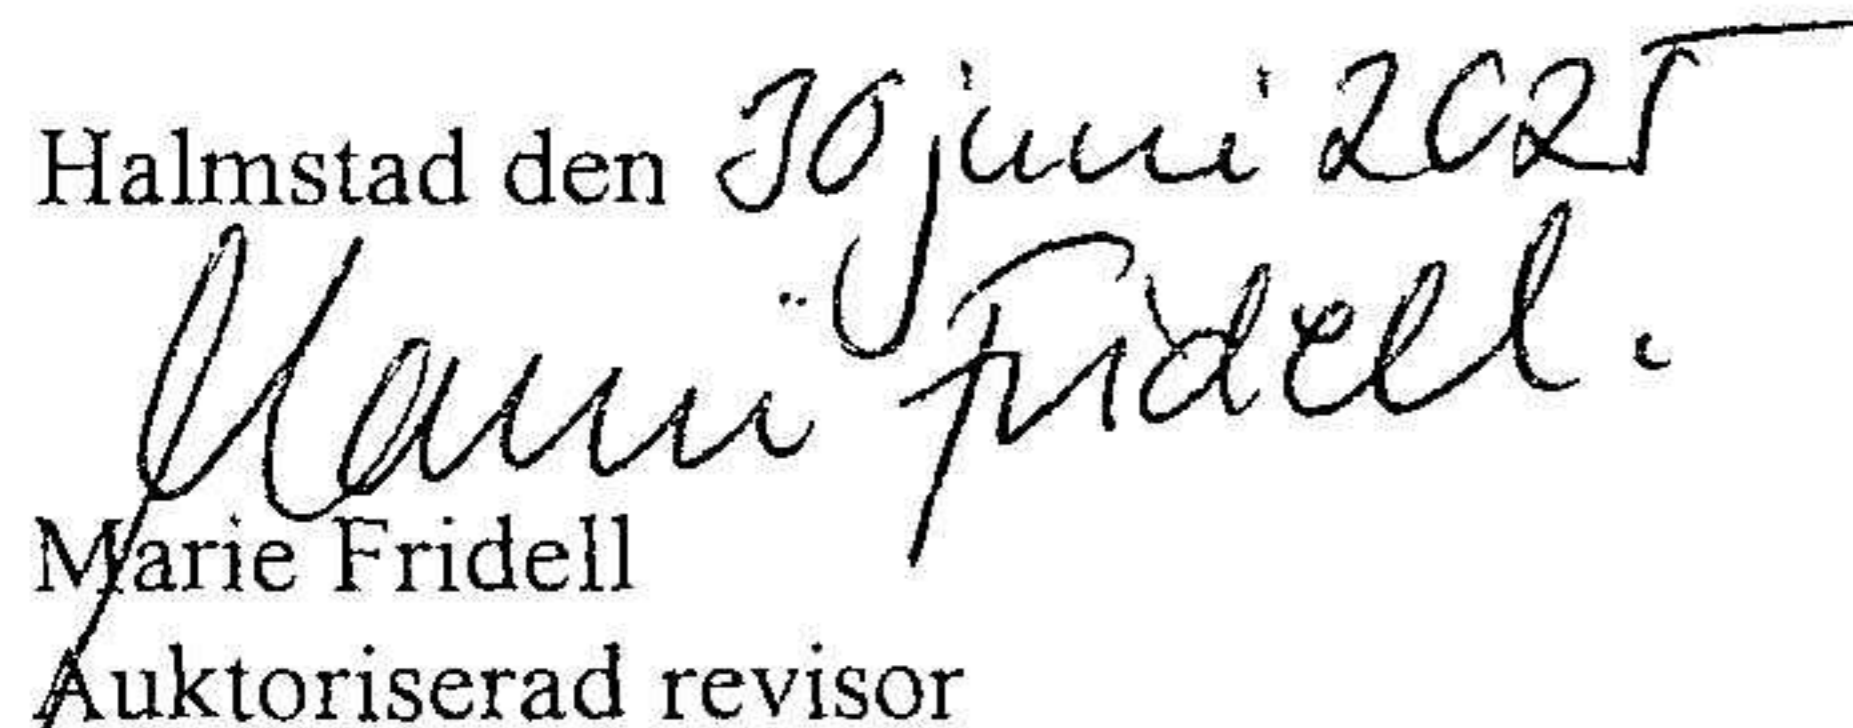 Halmstad den 30 juni 2025
Marie Fridell.
Marie Fridell
Auktoriserad revisor